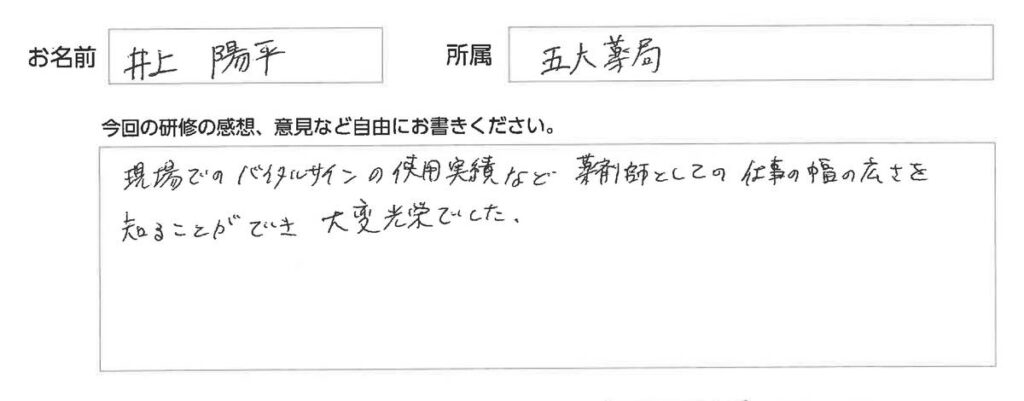 お名前 井上 陽平 所属 五大薬局
今回の研修の感想、意見など自由にお書きください。
現場でのバイタルサインの使用実績など 薬剤師としての 仕事の幅の広さを
知ることができ 大変光栄でした。